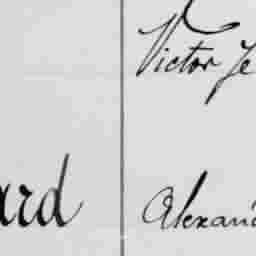 Victor Je
ard
Alexan